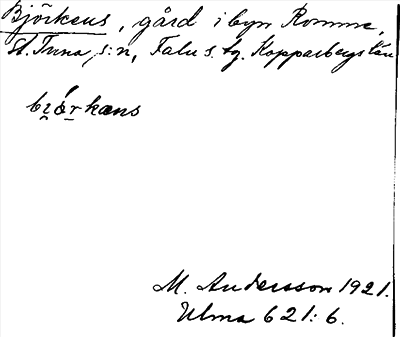 Björkens, gård i byn Romme,
St. Tuna s:n, Falu s. tg. Kopparbergs län
bi̯ǿr̠kæns
M. Andersson 1921.
Ulma 621:6.